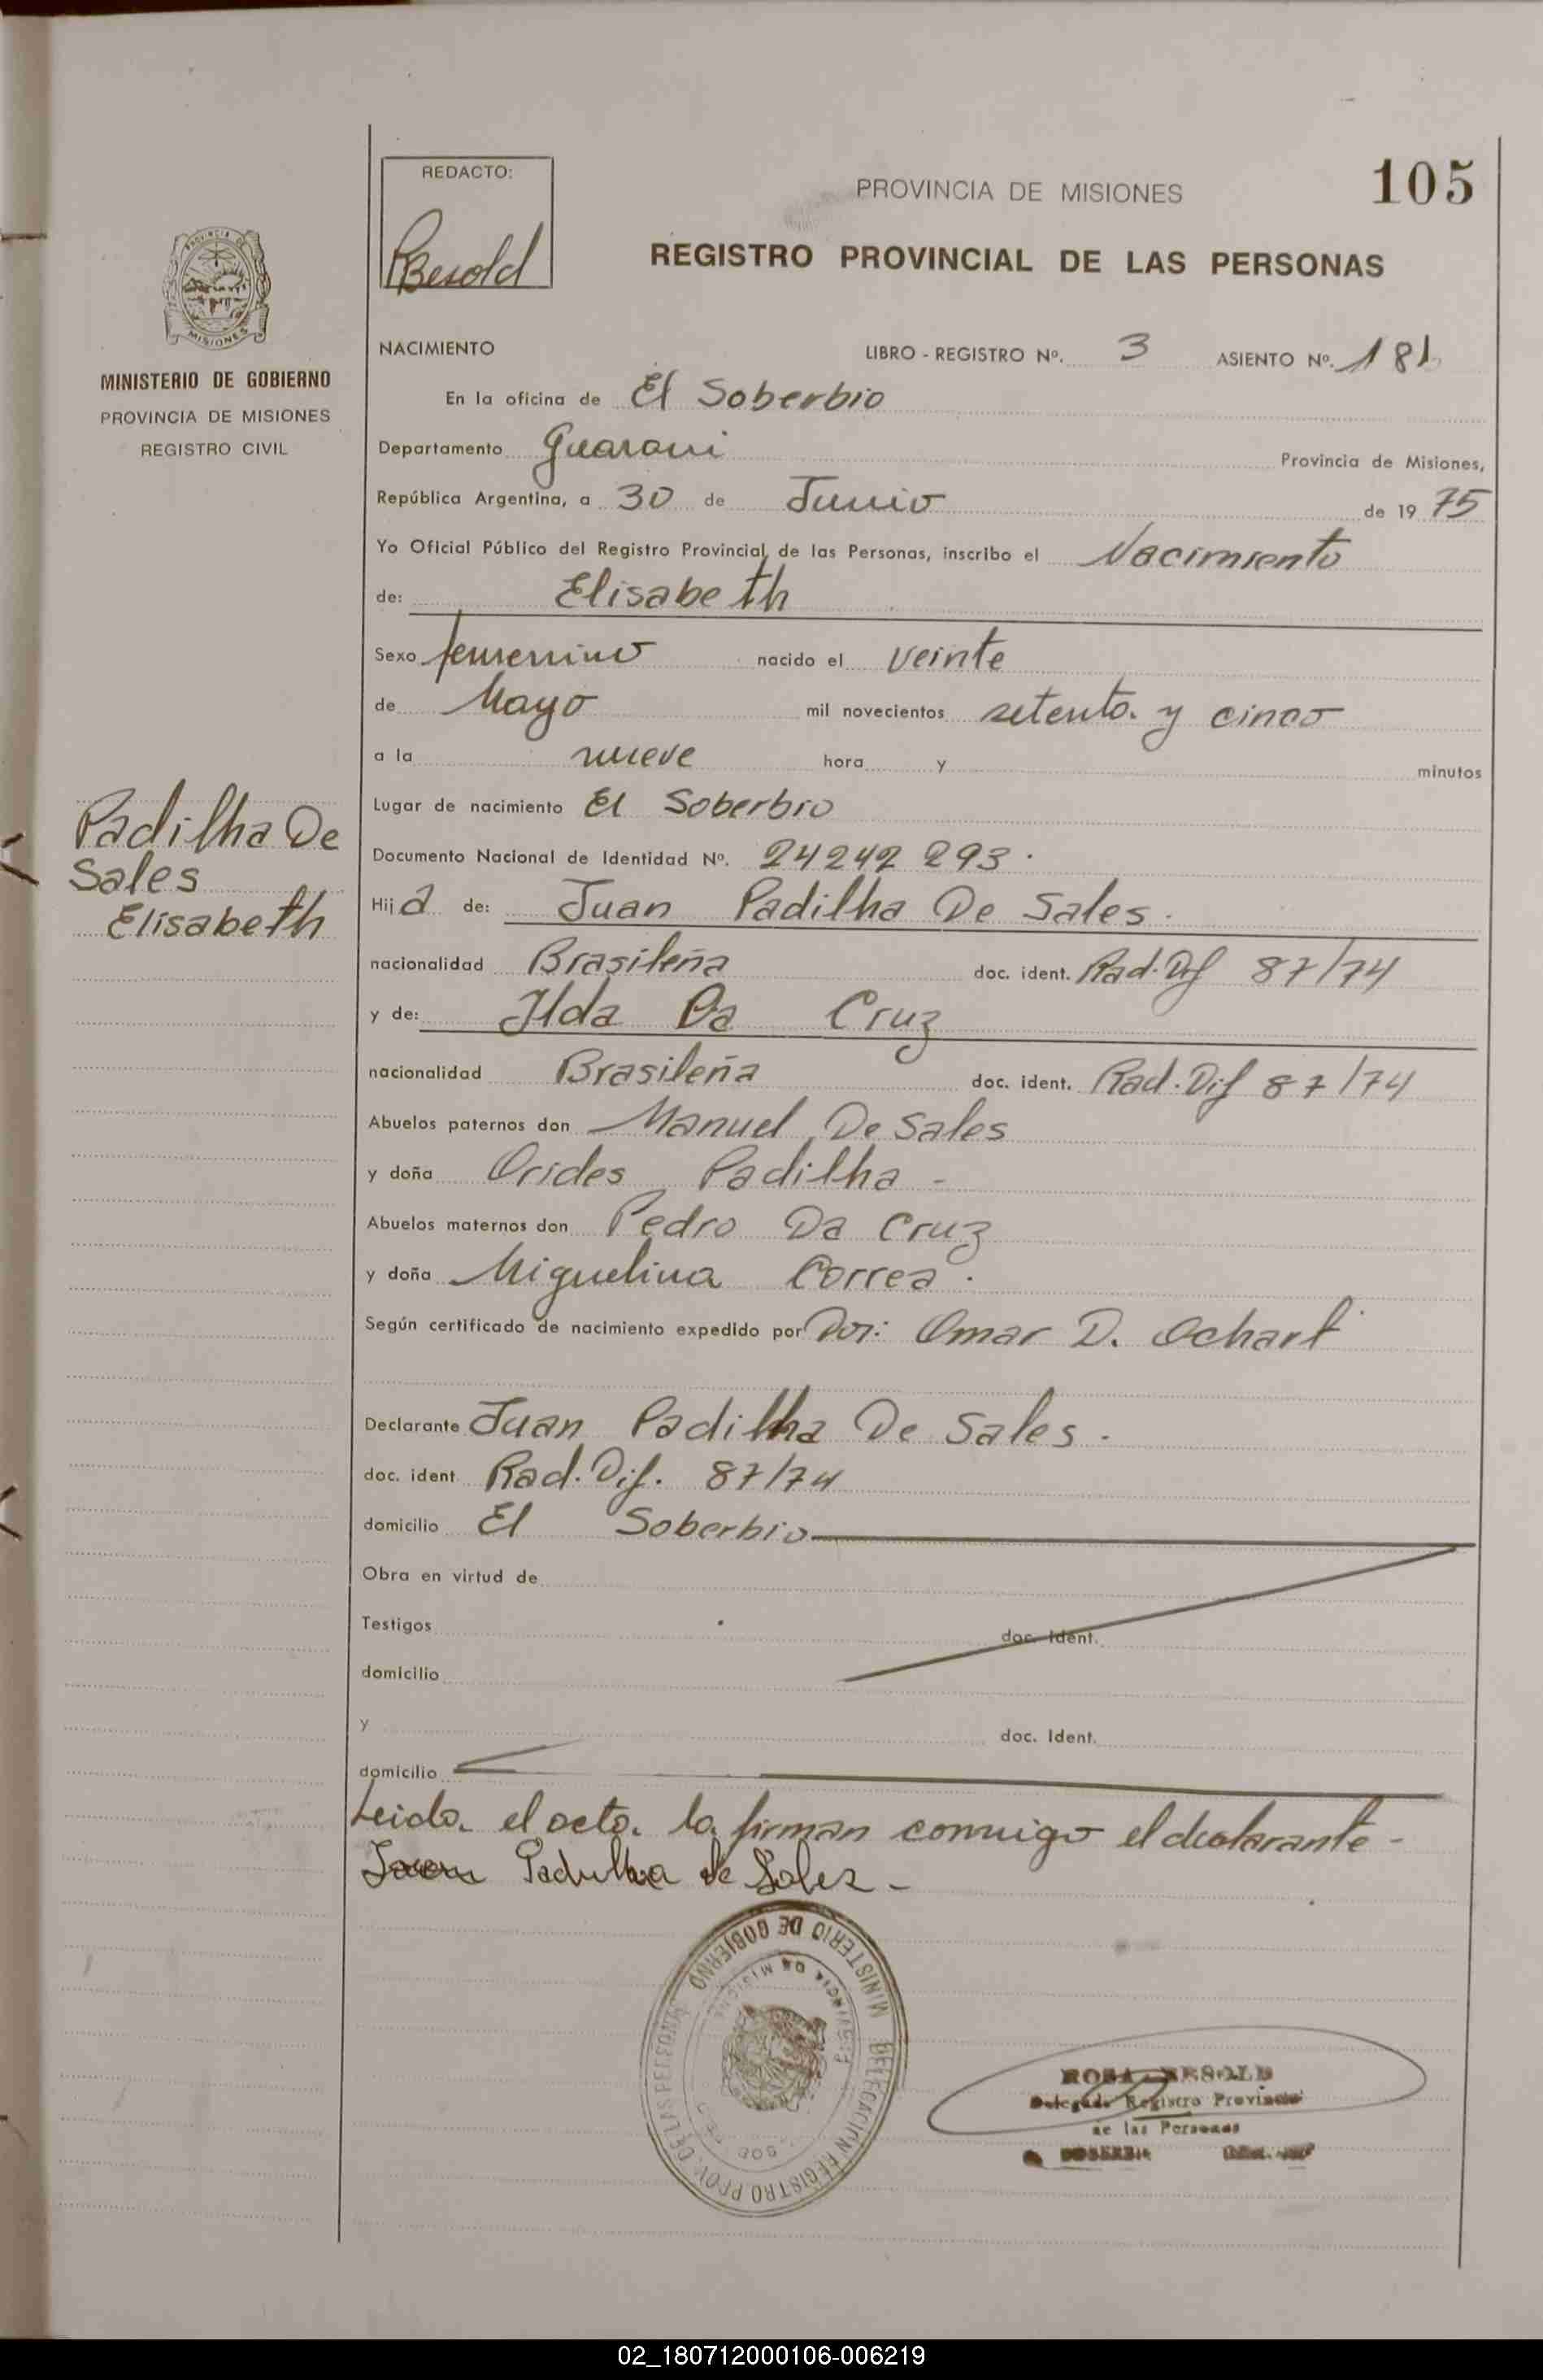 105
REDACTO:
RBesold
PROVINCIA DE MISIONES
REGISTRO PROVINCIAL DE LAS PERSONAS
PROVINCIA DE
MISIONES
MINISTERIO DE GOBIERNO
PROVINCIA DE MISIONES
REGISTRO CIVIL
NACIMIENTO LIBRO - REGISTRO Nº. 3 ASIENTO Nº. 181
En la oficina de El Soberbio
Departamento Guarani Provincia de Misiones,
República Argentina, a 30 de Junio de 19 75
Yo Oficial Público del Registro Provincial de las Personas, inscribo el Nacimiento
de: Elisabeth
Sexo femenino nacido el veinte
de Mayo mil novecientos setenta y cinco
a la nueve hora y minutos
Lugar de nacimiento El Soberbio
Padilha De
Sales
Elisabeth
Documento Nacional de Identidad Nº. 24242 293.
Hija de: Juan Padilha De Sales.
nacionalidad Brasileña doc. ident. Rad. Dif 87/74
y de: Ilda Da Cruz
nacionalidad Brasileña doc. ident. Rad. Dif 87/74
Abuelos paternos don Manuel De Sales
y doña Orides Padilha -
Abuelos maternos don Pedro Da Cruz
y doña Miguelina Correa.
Según certificado de nacimiento expedido por Dor: Omar D. Ochart
Declarante Juan Padilha De Sales.
doc. ident. Rad. Dif. 87/74
domicilio El Soberbio
Obra en virtud de
Testigos doc. Ident.
domicilio
y doc. Ident.
domicilio
Leida el acta la firman conmigo el declarante -
Padilha de Sales -
MINISTERIO DE GOBIERNO
DELEGACION REGISTRO PROV. DE LAS PERSONAS
PROVINCIA DE MISIONES
ROSA BESOLD
Delegada Registro Provincial
de las Personas
02_180712000106-006219